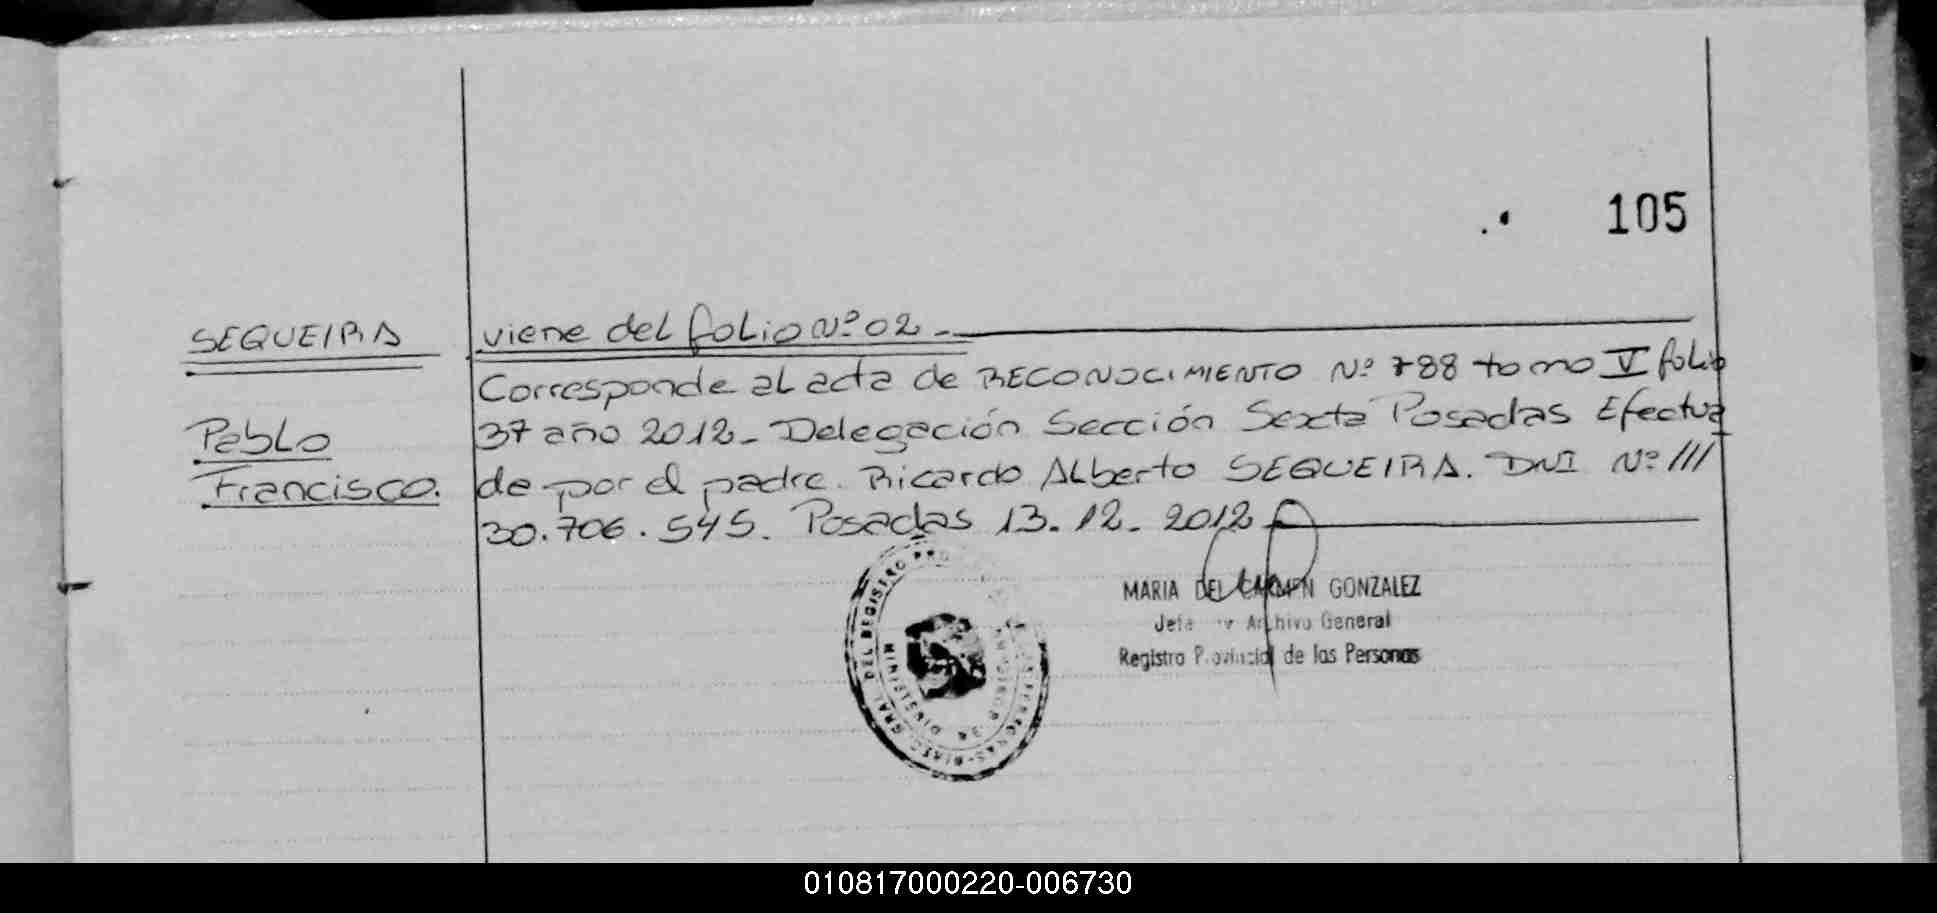 105
SEQUEIRA
viene del folio Nº 02 -
Corresponde al acta de RECONOCIMIENTO Nº 788 tomo V folio
Pablo
37 año 2012 - Delegación Sección Sexta Posadas Efectua
Francisco.
da por el padre. Ricardo Alberto SEQUEIRA. DNI Nº ///
30.706.545. Posadas 13.12.2012
MARIA DEL CARMEN GONZALEZ
Jefa Archivo General
Registro Provincial de las Personas
GRAL DEL REGISTRO PRO
010817000220-006730